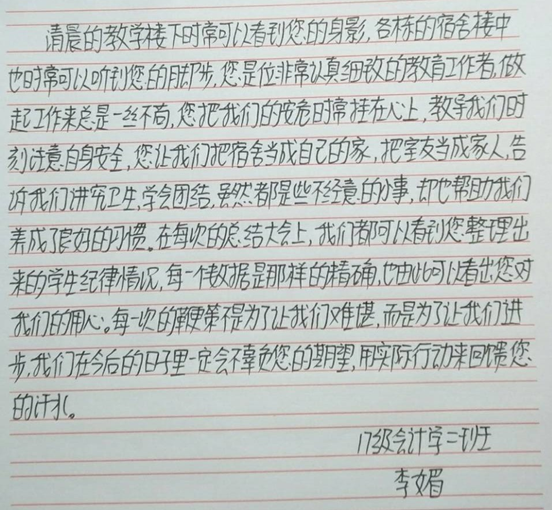 清晨的教学楼下时常可以看到您的身影,各栋的宿舍楼中
也时常可以听到您的脚步,您是位非常认真细致的教育工作者,做
起工作来总是一丝不苟,您把我们的安危时常挂在心上,教导我们时
刻注意自身安全,您让我们把宿舍当成自己的家,把室友当成家人,告
诉我们讲究卫生,学会团结,虽然都是些不经意的小事,却也帮助我们
养成了良好的习惯。在每次的总结大会上,我们都可以看到您整理出
来的学生纪律情况,每一个数据是那样的精确,也由此可以看出您对
我们的用心。每一次的鞭策不是为了让我们难堪,而是为了让我们进
步,我们在今后的日子里一定会不辜负您的期望,用实际行动来回馈您
的汗水。
17级会计学二班
李媚